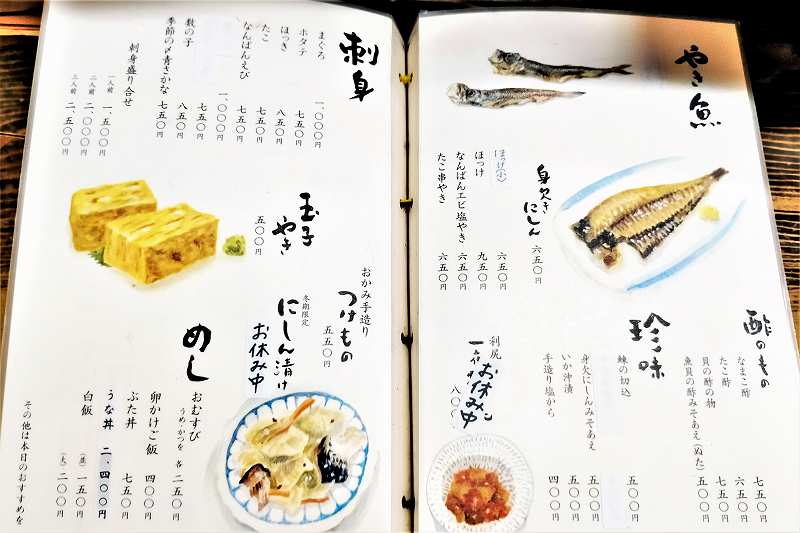 やき魚
身欠きにしん 六五〇円
ほっけ(小) 六五〇円
ほっけ 九五〇円
なんばんエビ塩やき 六五〇円
たこ串やき 六五〇円
酢のもの
なまこ酢 七五〇円
たこ酢 六五〇円
貝の酢の物 七五〇円
魚貝の酢みそあえ(ぬた) 五五〇円
珍味
鰊の切込 五〇〇円
身欠にしんみそあえ 五五〇円
いか沖漬 五〇〇円
手造り塩から 四〇〇円
利尻
お休み中
刺身
まぐろ 一、〇〇〇円
ホタテ 七五〇円
ほっき 八五〇円
たこ 七五〇円
なんばんえび 七五〇円
一、〇〇〇円
七五〇円
数の子 八五〇円
季節の〆青さかな 七五〇円
刺身盛り合せ
一人前 一、五〇〇円
二人前 二、〇〇〇円
三人前 二、五〇〇円
玉子やき 五〇〇円
おかみ手造り
つけもの 五五〇円
冬期限定
にしん漬け
お休み中
めし
おむすび うめ・かつを 各 二五〇円
卵かけご飯 四五〇円
ぶた丼 七五〇円
うな丼 二、四〇〇円
白飯 (並) 一五〇円
(大) 二〇〇円
その他は本日のおすすめを